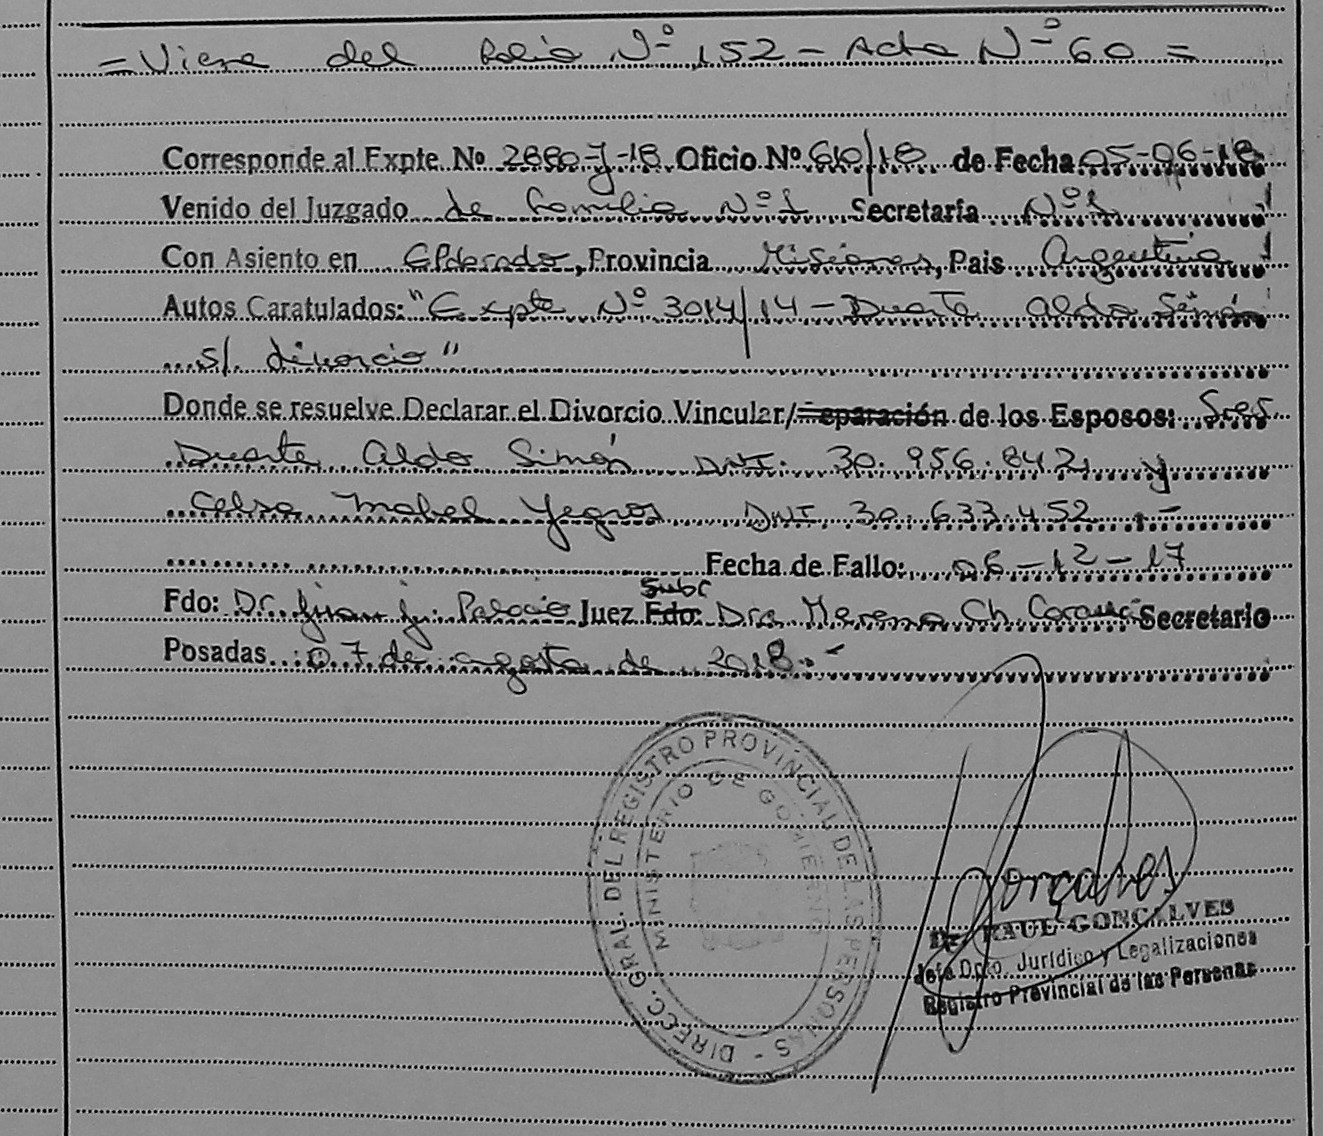 = Viene del folio Nº 152 - Acta Nº 60 =
Corresponde al Expte. Nº 2880-J-18 Oficio Nº 610/18 de Fecha 05-06-18
Venido del Juzgado de Familia Nº 1 Secretaría Nº 1
Con Asiento en Eldorado, Provincia Misiones, Pais Argentina
Autos Caratulados: "Expte Nº 3014/14 - Duarte Aldo Simón
s/. divorcio"
Donde se resuelve Declarar el Divorcio Vincular/Separación de los Esposos: Sres
Duarte Aldo Simón DNI. 30.956.842 y
Celsa Mabel Yegros DNI. 30.633.452 .-
Fecha de Fallo: 06-12-17
Subr
Fdo: Dr. Juan J. Palacio Juez Fdo: Dra Ch. Secretario
Posadas: 07 de agosto de 2018.-
DIRECC. GRAL. DEL REGISTRO PROVINCIAL DE LAS PERSONAS -
MINISTERIO DE GOBIERNO
Gonçalves
Dr. RAUL GONÇALVES
Jefe Dpto. Jurídico y Legalizaciones
Registro Provincial de las Personas